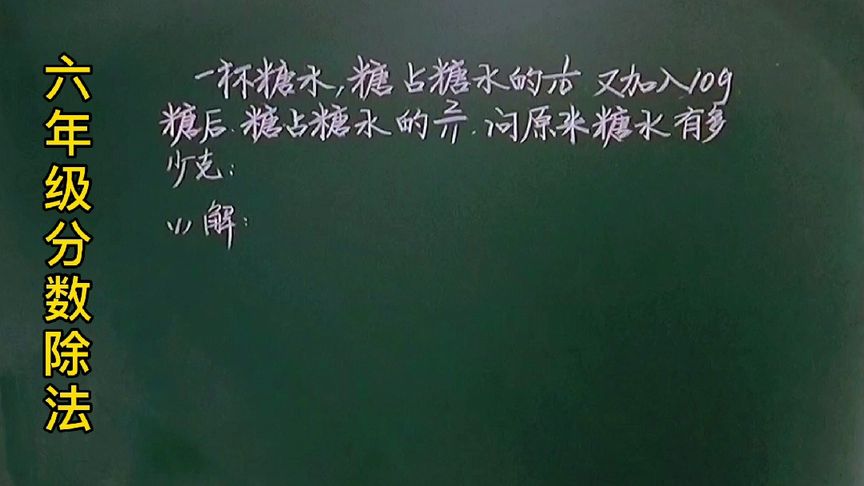 六年级分数除法
一杯糖水,糖占糖水的1/10 又加入10g
糖后.糖占糖水的2/11.问原来糖水有多
少克:
(1)解: